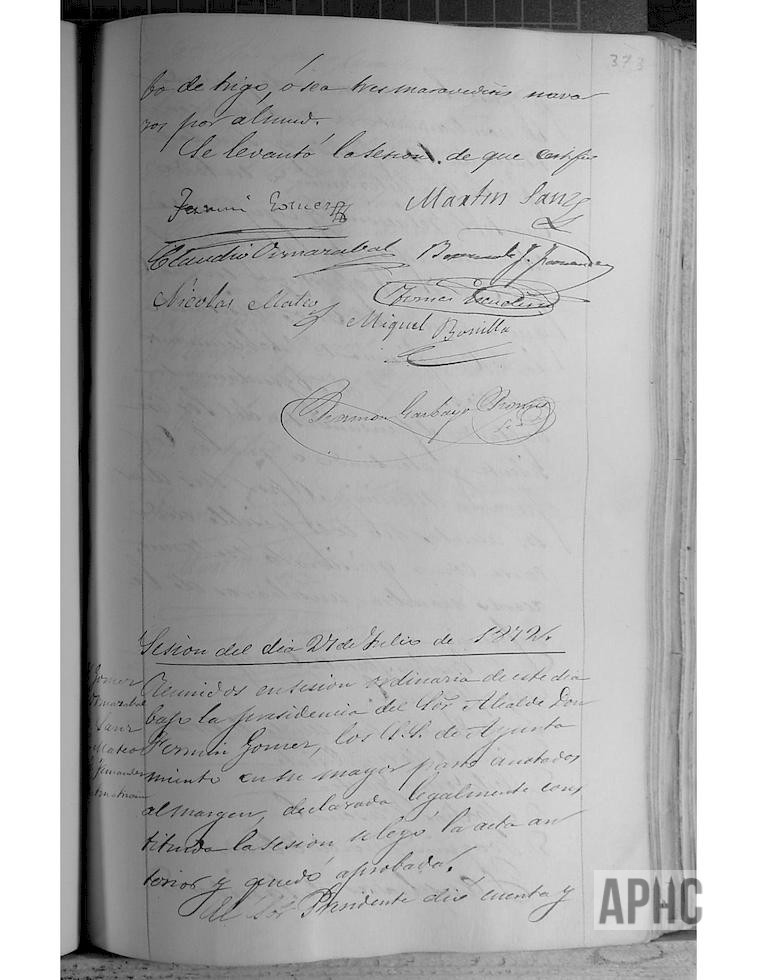 373
bo de trigo, ó sea tres maravedises navar
ros por almud.
Se levantó la sesion, de que certifico
Fermin Gomez
Martin Sanz
Claudio Ormazabal
Nicolas Mateo
Tomas Escudero
Miguel Bonilla
Ramon Garbayo
Srio
Sesion del dia 27 de Julio de 1872.
Gomez
Ormazabal
Sanz
Mateo
Fernandez
Reunidos en sesion ordinaria de este dia
bajo la presidencia del Sor Alcalde Don
Fermin Gomez, los S.S. de Ayunta
miento en su mayor parte anotados
al margen, declarada legalmente cons
tituida la sesion se leyó la acta an
terior y quedó aprobada.
El Sor Presidente dió cuenta y
APHC